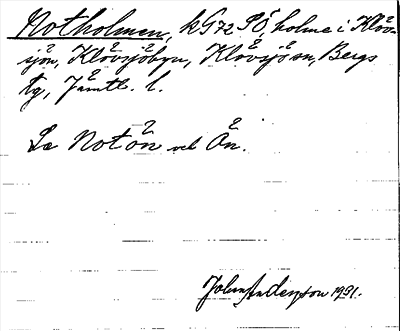 Notholmen, kG72SÖ, holme i Klöv-
sjön, Klövsjöbyn, Klövsjö sn, Bergs
tg, Jämtl. l.
Se Notön och Ön.
John Anderzson 1931.